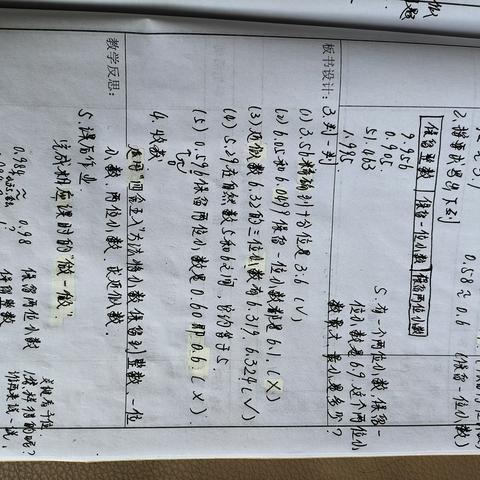 2、按要求填入空。
保留整数 保留一位小数 保留两位小数
9.956
0.905
51.063
1.995
0.58≈0.6 (保留一位小数)
5.有一个两位小数,保留一
位小数是6.9,这个两位小
数最大、最小是多少?
板书设计:
3.判一判
(1) 3.56精确到十分位是3.6 (√)
(2) 6.05和6.0499保留一位小数都是6.1. (×)
(3) 近似数6.32的三位小数有6.319、6.324(√)
(4) 5.29在自然数5和6之间,它约等于5.
(5) 0.596保留两位小数是0.60即0.6. (×)
4、收获
用“四舍五入”方法将小数保留到整数、一位
小数、两位小数,求近似数.
教学反思:
5、课后作业.
完成相应课时的“做一做”.
0.984≈0.98 保留两位小数
保留整数